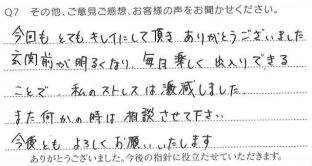 Q7 その他、ご意見ご感想、お客様の声をお聞かせください。
今回も とても キレイにして頂き ありがとうございました
玄関前が明るくなり 毎日楽しく出入りできる
ことで、私のストレスは激減しました
また何かの時は相談させて下さい
今後とも よろしくお願いいたします
ありがとうございました。今後の指針に役立たせていただきます。